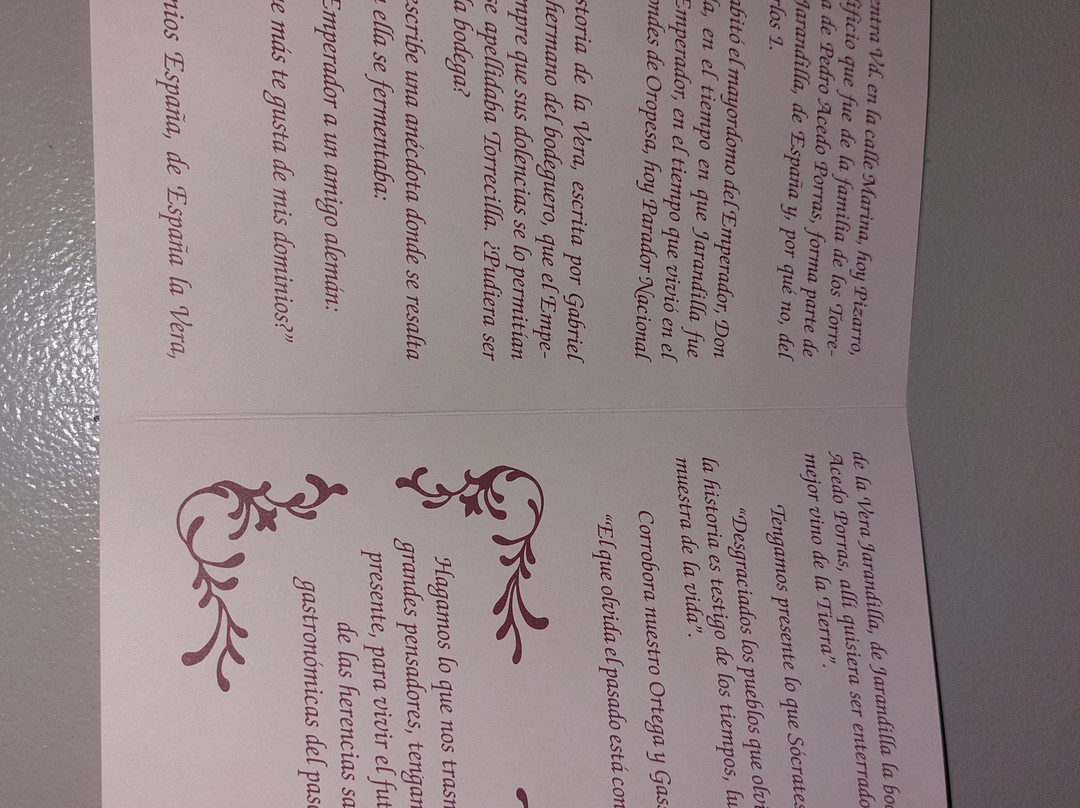 entra Vd. en la calle Marina, hoy Pizarro,
ificio que fue de la familia de los Torre-
a de Pedro Acedo Porras, forma parte de
Jarandilla, de España y, por qué no, del
rlos I.
abitó el mayordomo del Emperador, Don
la, en el tiempo en que Jarandilla fue
Emperador, en el tiempo que vivió en el
ondes de Oropesa, hoy Parador Nacional
storia de la Vera, escrita por Gabriel
hermano del bodeguero, que el Empe-
mpre que sus dolencias se lo permitían
se apellidaba Torrecilla. ¿Pudiera ser
la bodega?
escribe una anécdota donde se resalta
ella se fermentaba:
Emperador a un amigo alemán:
ue más te gusta de mis dominios?”
nios España, de España la Vera,
de la Vera Jarandilla, de Jarandilla la bo
Acedo Porras, allí quisiera ser enterrado
mejor vino de la Tierra”.
Tengamos presente lo que Sócrates
“Desgraciados los pueblos que olvi
la historia es testigo de los tiempos, lu
muestra de la vida”.
Corrobora nuestro Ortega y Gas
“El que olvida el pasado está con
Hagamos lo que nos trasn
grandes pensadores, tengan
presente, para vivir el fut
de las herencias sa
gastronómicas del pas